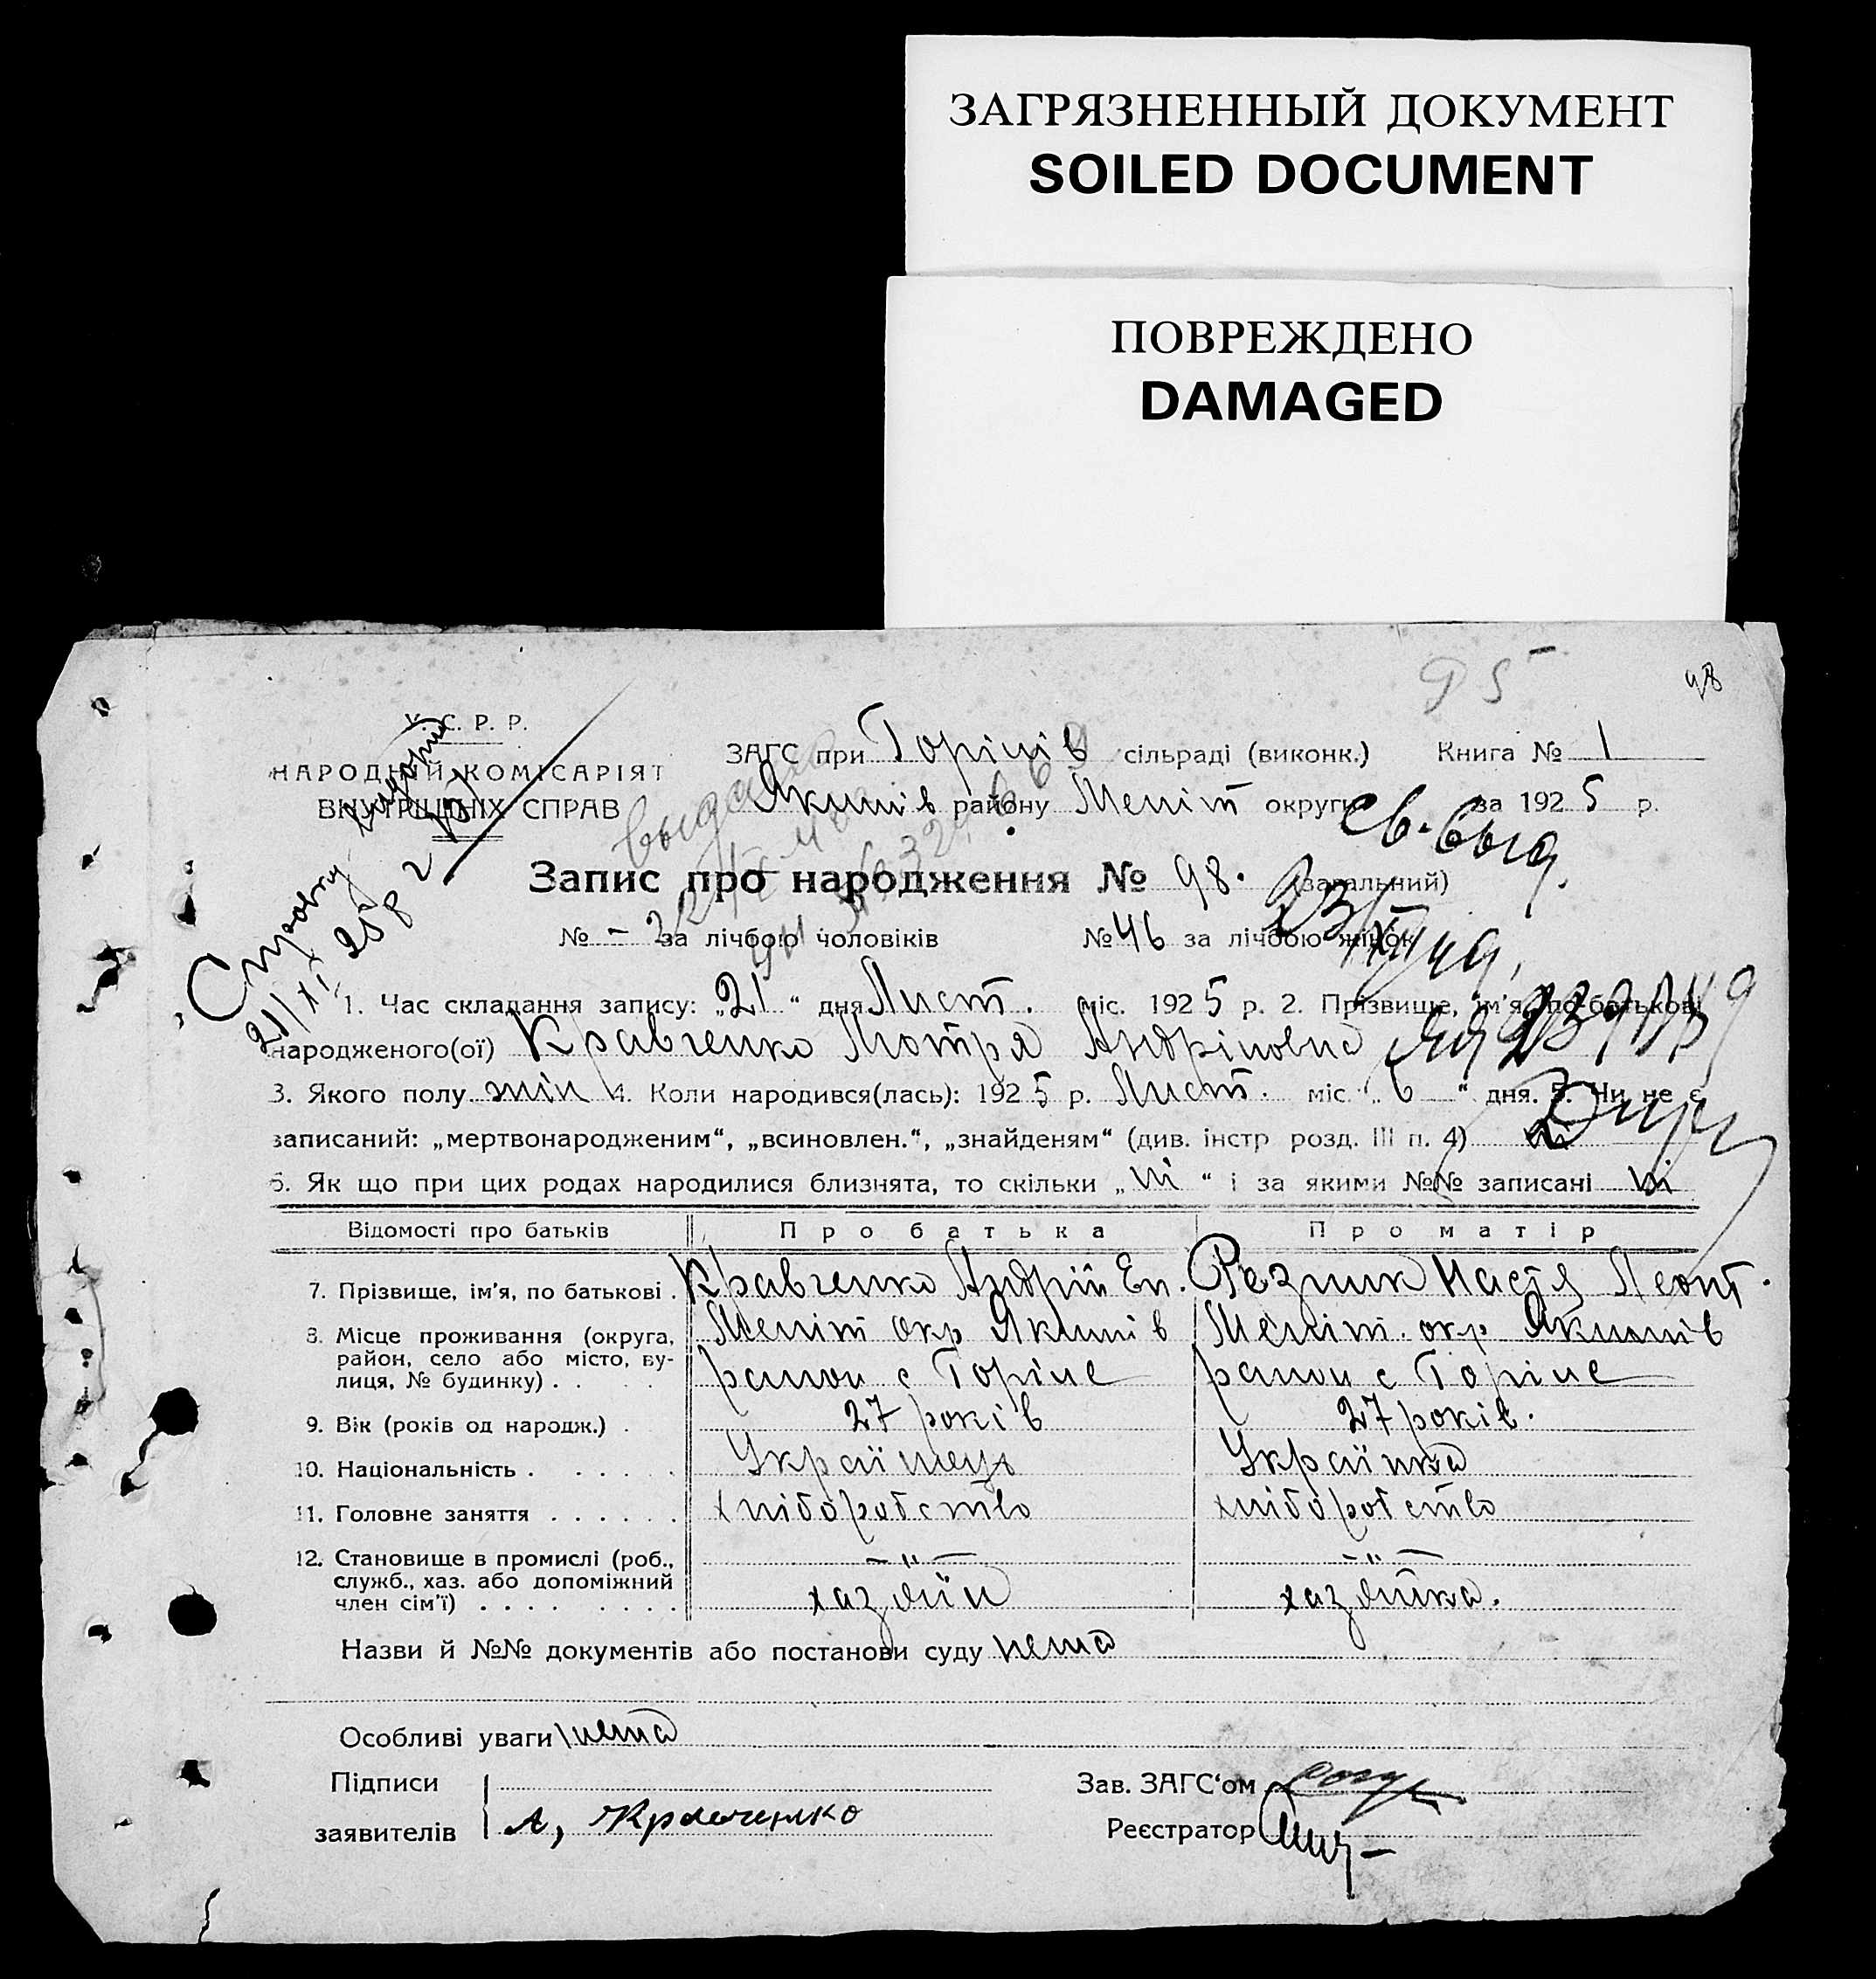 ЗАГРЯЗНЕННЫЙ ДОКУМЕНТ
SOILED DOCUMENT
ПОВРЕЖДЕНО
DAMAGED
95
98
У. С. Р. Р.
НАРОДНІЙ КОМІСАРІЯТ
ВНУТРІШНІХ СПРАВ
ЗАГС при Горіців сільраді (виконк.) Книга № 1
Якимів району Меліт округи за 1925 р.
св. выд.
Запис про народження № 98. (загальний)
№ - за лічбою чоловіків № 46 за лічбою жінок
Справку
21/XI 25 г
1. Час складання запису: „21“ дня Лист. міс. 1925 р. 2. Прізвище, ім'я, по-батькові
народженого(ої) Кравченко Мотря Андріповна
3. Якого полу жін 4. Коли народився(лась): 1925 р. Лист. міс. „6“ дня. 5. Чи не є
записаний: „мертвонародженим“, „всиновлен.“, „знайденям“ (див. інстр розд. III п. 4) ні
6. Як що при цих родах народилися близнята, то скільки „ні“ і за якими №№ записані ні
Відомості про батьків Про батька Про матір
7. Прізвище, ім'я, по батькові . Кравченко Андрій Еп. Резник Настя Леонт.
8. Місце проживання (округа, Меліт окр Якимів Меліт. окр Якимів
район, село або місто, ву-
лиця, № будинку) . . . . район с Горіле район с Горіле
9. Вік (років од народж.) . 27 років 27 років.
10. Національність . . . . . . Українець Українка
11. Головне заняття . . . . . . хліборобство хліборобство
12. Становище в промислі (роб., - " - - " -
служб., хаз. або допоміжний
член сім'ї) . . . . . . . . хазяїн хазяйка.
Назви й №№ документів або постанови суду нема
Особливі уваги нема
Підписи Зав. ЗАГС'ом
заявителів А, Кравченко Реєстратор